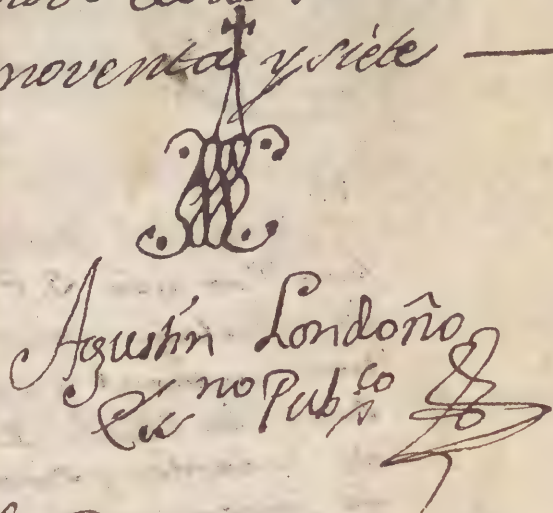 noventa y siéte
Agustín Londoño
Es.no Pub.co